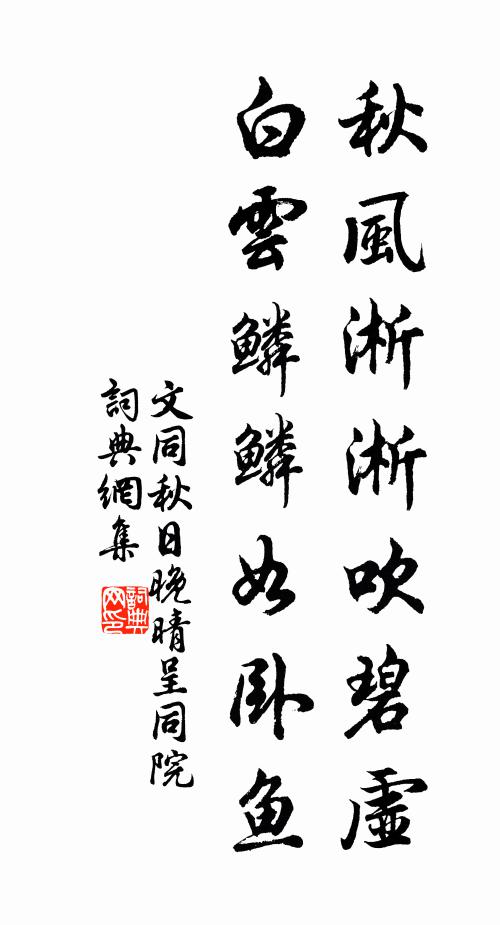 秋風淅淅吹碧虛
白雲鱗鱗如卧魚
文同秋日晚晴呈同院
詞典網集
詞典网印